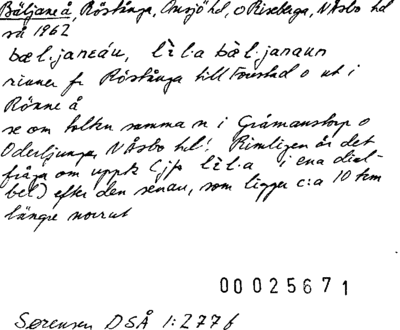 Bäljane å, Röstånga, Onsjö hd, o Riseberga, N Åsbo hd
så 1962
bæl.janeáu, lìl.a bàl.janaun
rinner fr Röstånga till Forestad o ut i
Rönne å
se om tolkn samma n i Gråmanstorp o
Oderljunga, N Åsbo hd! Rimligen är det
fråga om uppk (jfr lìl.a i ena dial-
bel.) efter den senau, som ligger c:a 10 km
längre norrut
00025671
Sørensen DSÅ 1:277 f